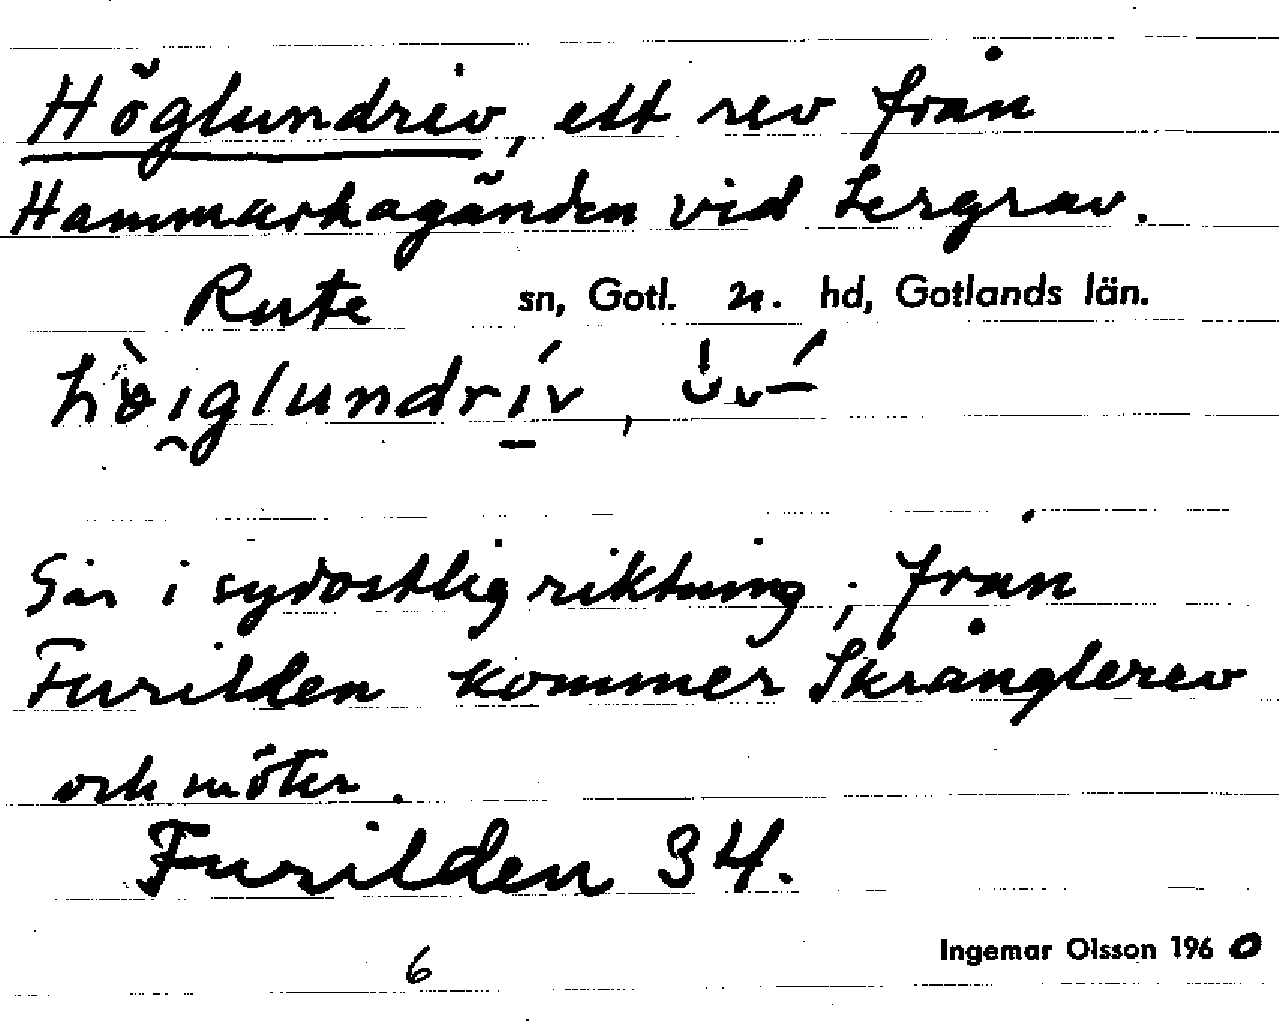 Höglundrev, ett rev från
Hammarhagänden vid Lergrav.
Rute sn, Gotl. n. hd, Gotlands län.
hò̤i̯glundrı̱́v,
Går i sydostlig riktning; från
Furilden kommer Skränglerev
och möter.
Furilden 34.
Ingemar Olsson 1960
6